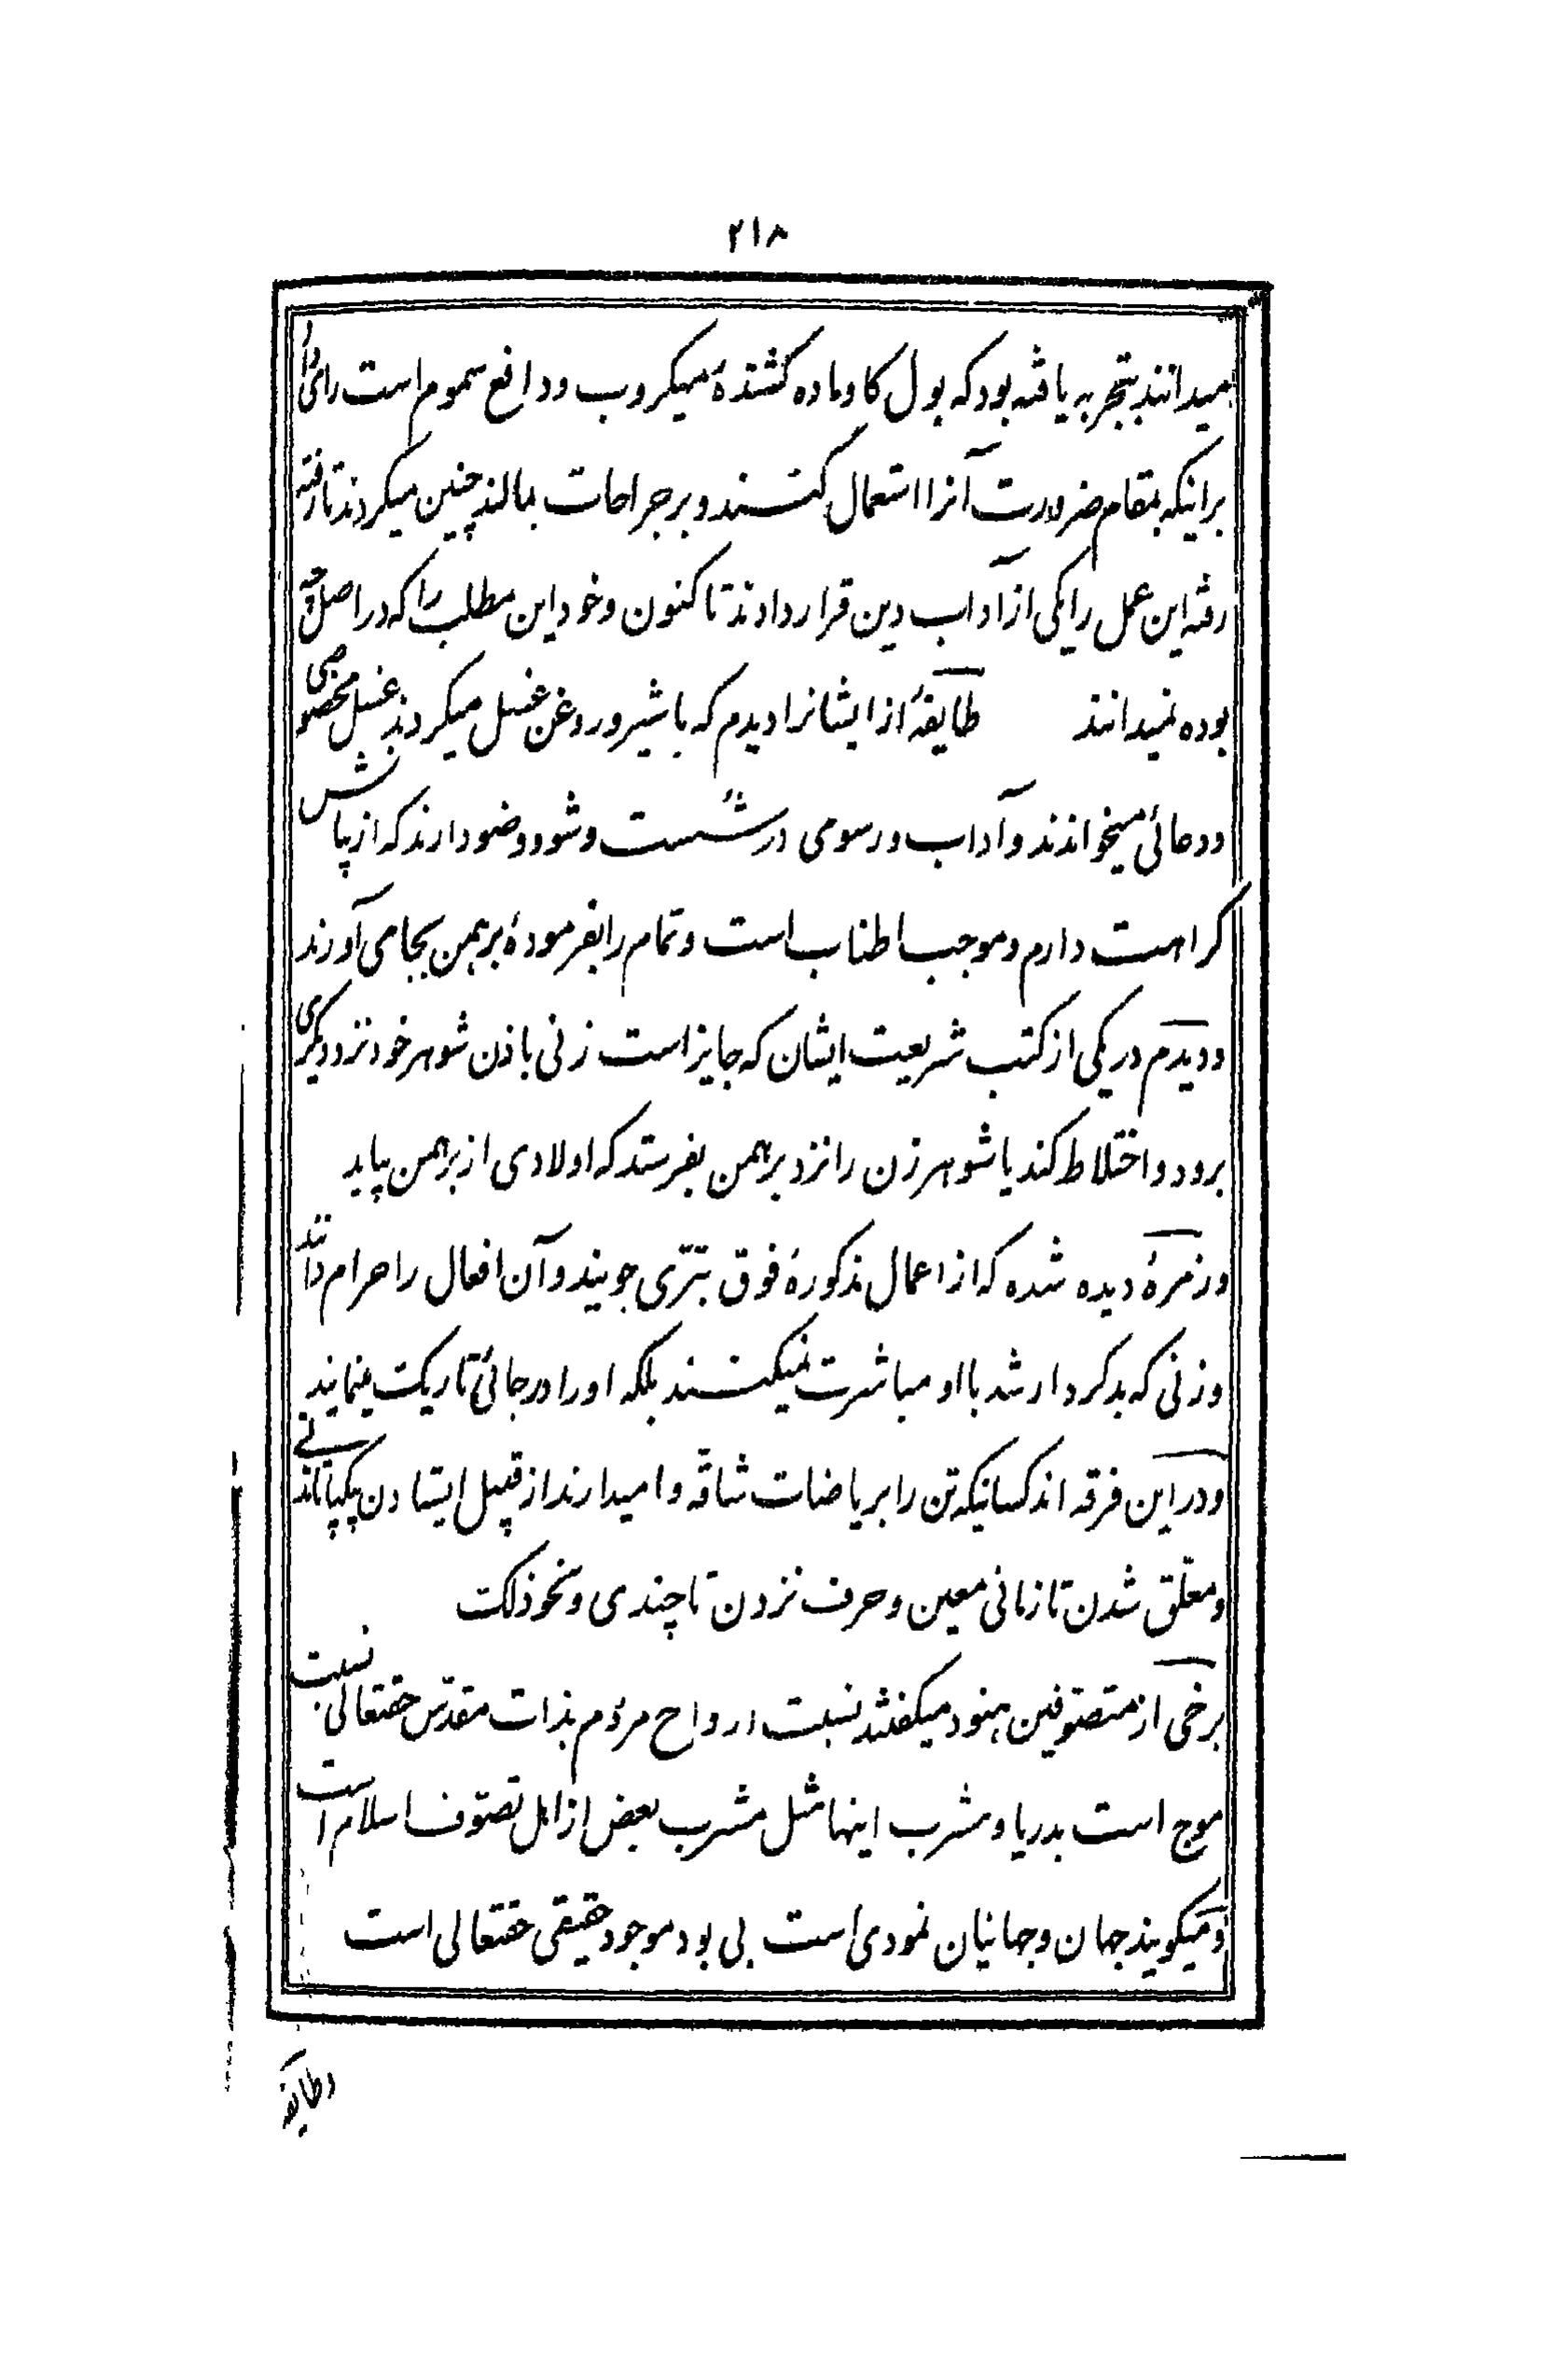 ۲۱۸
میدانند بتجربه یافته بود که بول کاو ماده کشندهٔ میکروب ودافع سموم است رای داد
برانیکه بمقام ضرورت آنرا استعمال کنند و بر جراحات بمالند چنین میکردند تا رفته
رفته این عمل را یکی از آداب دین قرار دادند تا کنون و خود این مطلب را که در اصل چه
بوده نمیدانند طایفهٔ از ایشانرا دیدم که با شیر و روغن غسل میکردند غسل مخصوصی
ودعائی میخواندند و آداب و رسومی در شست وشو ووضو دارند که از بیانش
کراهت دارم و موجب اطناب است و تمام را بفرمودهٔ برهمن بجا می آورند
ودیدم در یکی از کتب شریعت ایشان که جایز است زنی باذن شوهر خود نزد دیگری
برود و اختلاط کند یا شوهر زن را نزد برهمن بفرستد که اولادی از برهمن بیابد
و زمرهٔ دیده شده که از اعمال مذکورهٔ فوق تبرّی جویند و آن افعال را حرام دانند
و زنی که بدکردار شد با او مباشرت نمیکنند بلکه او را در جائی تاریک مینمایند
و در این فرقه اند کسانیکه تن را بریاضات شاقه وامیدارند از قبیل ایستادن بیکپا تا زمانی
و معلق شدن تا زمانی معین و حرف نزدن تا چندی و نحو ذلک
برخی از متصوّفین هنود میکفتند نسبت ارواح مردم بذات مقدّس حقتعالی نسبت
موج است بدریا و مشرب اینها مثل مشرب بعض از اهل تصوّف اسلام است
و میکویند جهان و جهانیان نمودی است بی بود موجود حقیقی حقتعالی است
وطایفه